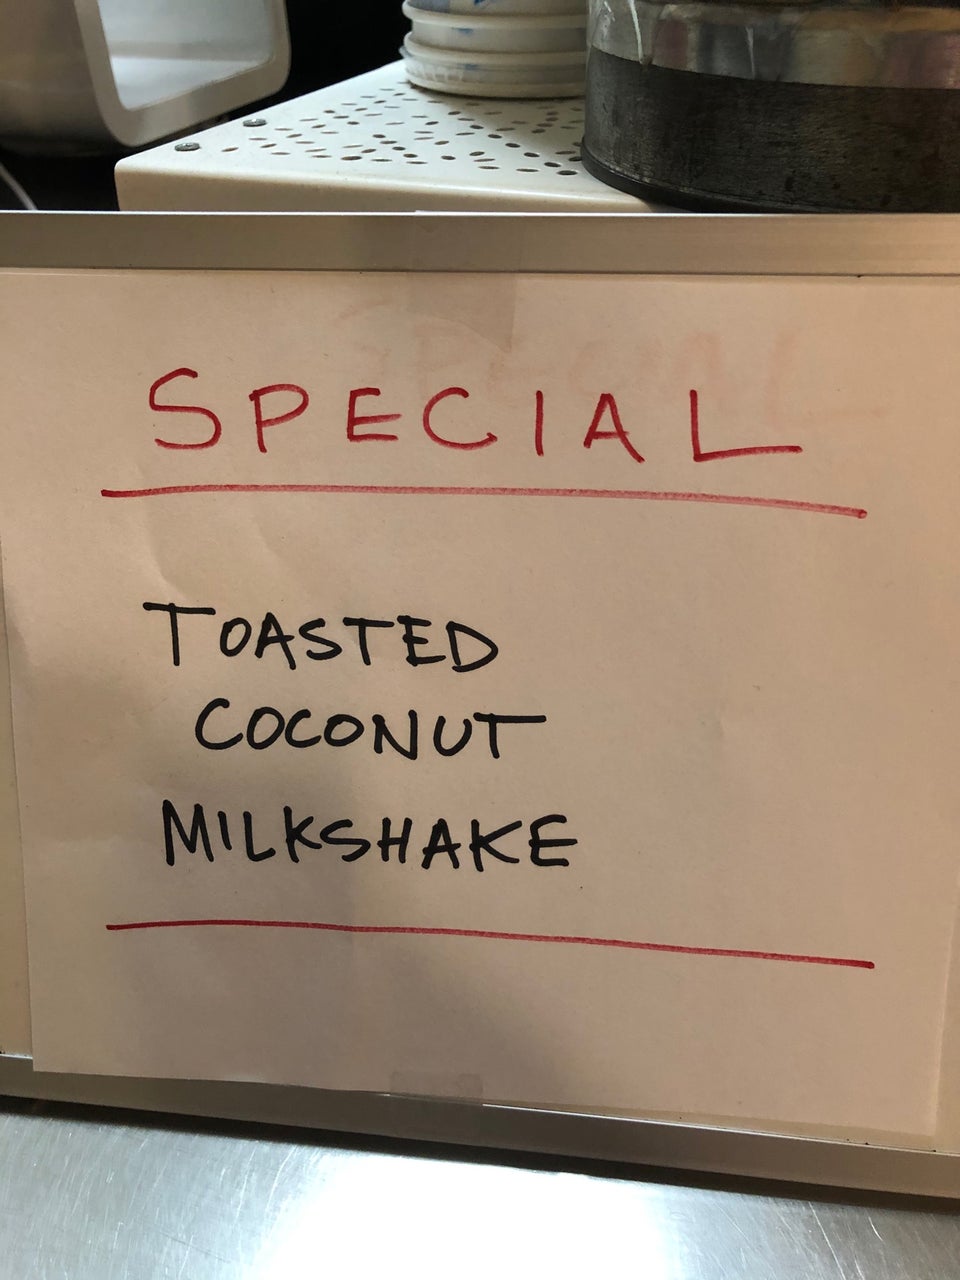 SPECIAL
TOASTED
COCONUT
MILKSHAKE